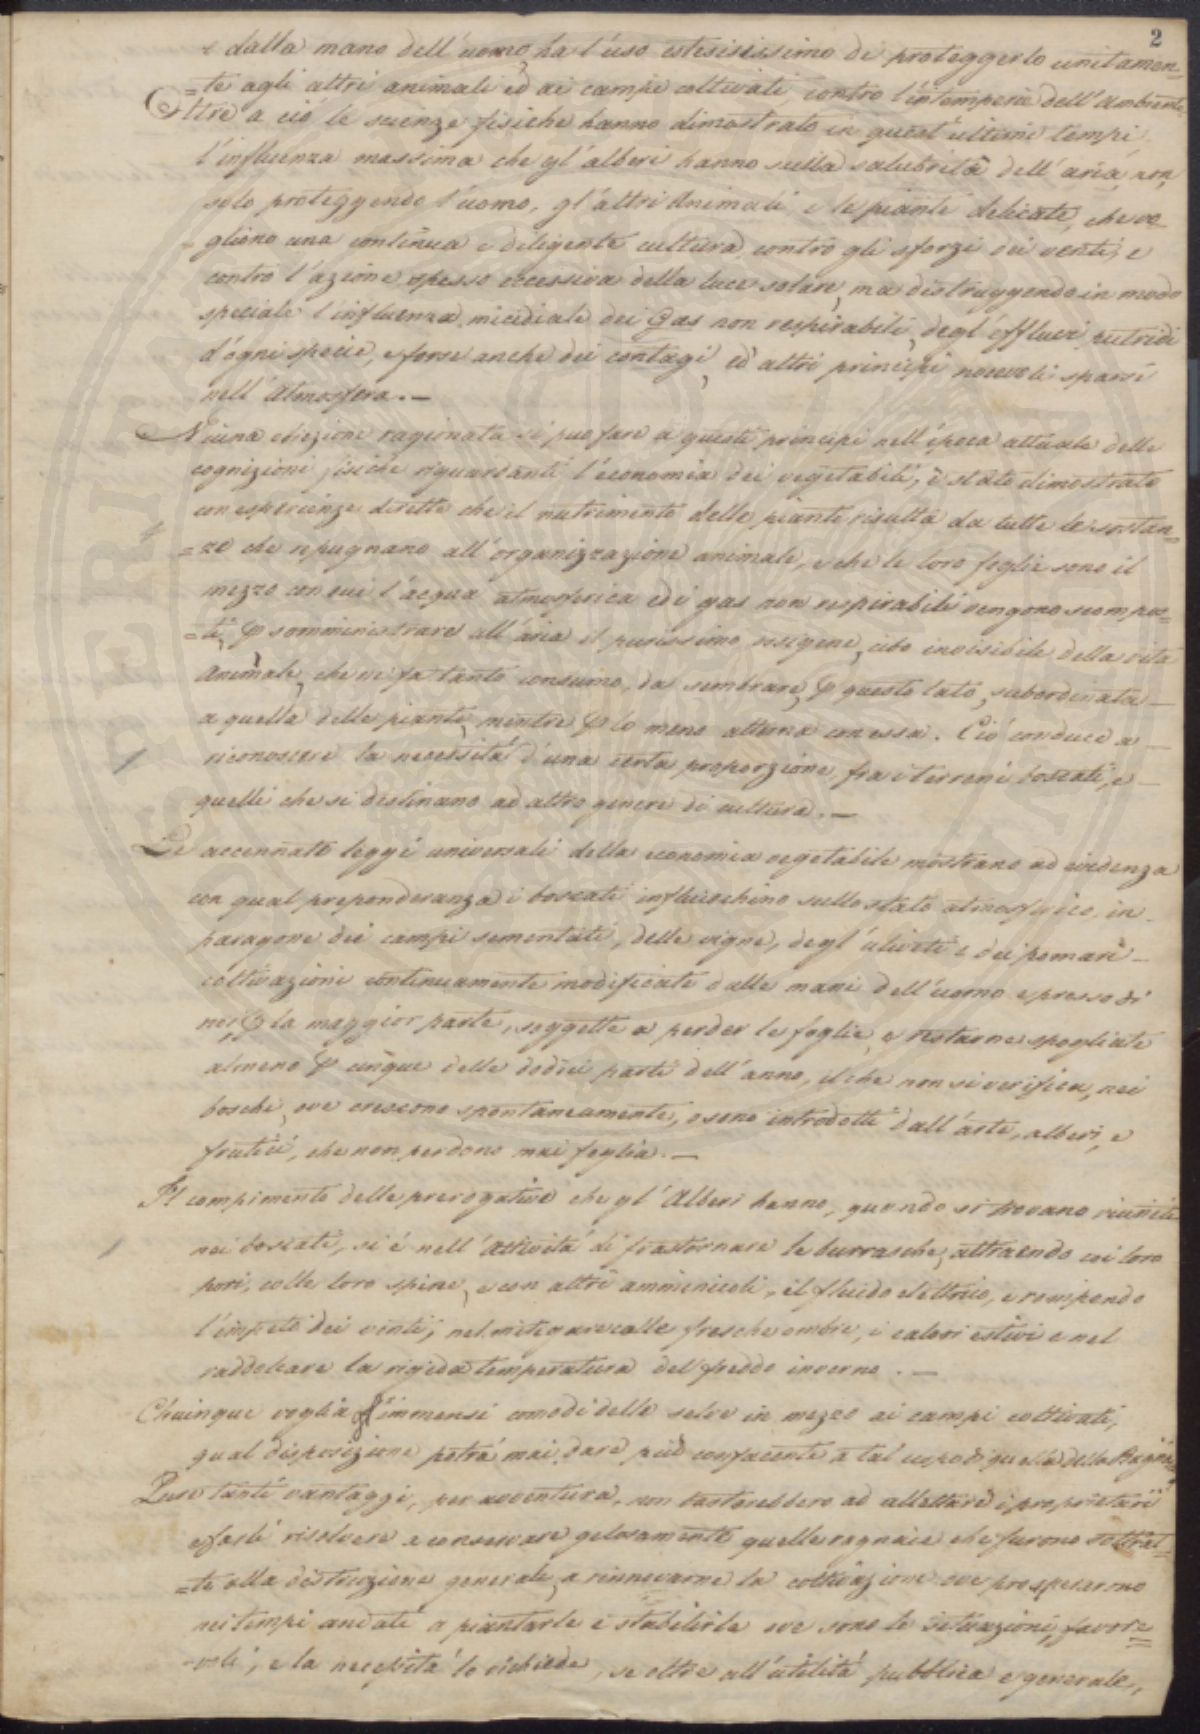 2
e dalla mano dell'uomo, ha l'uso estesissimo di proteggerlo unitamen=
=te agli altri animali ed ai campi coltivati, contro l'intemperie dell'ambiente.
Oltre a ciò le scienze fisiche hanno dimostrato in quest'ultimi tempi
l'influenza massima che gl'alberi hanno sulla salubrità dell'aria, non
solo proteggendo l'uomo, gl'altri Animali, e le piante delicate, che vo=
=gliono una continua e diligente cultura, contro gli sforzi dei venti, e
contro l'azione spesso eccessiva della luce solare, ma distruggendo in modo
speciale l'influenza micidiale dei Gas non respirabili, degl'effluvi putridi
d'ogni specie, e forse anche dei contagi, ed altri principj nocevoli sparsi
nell'Atmosfera. —
Niuna obiezione ragionata si può fare a questi principj nell'epoca attuale delle
cognizioni fisiche riguardanti l'economia dei vegetabili, è stato dimostrato
con esperienze dirette che il nutrimento delle piante risulta da tutte le sostan=
=ze che repugnano all'organizzazione animale, e che le loro foglie sono il
mezzo con cui l'acqua atmosferica ed i gas non respirabili vengono scompos=
=ti, p somministrare all'aria il purissimo ossigene, cibo invisibile della vita
Animale, che ne fa tanto consumo, da sembrare, p questo lato, subordinata —
a quella delle piante, mentre p lo meno alterna con essa. Ciò conduce a —
riconoscere la necessità d'una certa proporzione fra i terreni boscati, e —
quelli che si destinano ad altro genere di cultura. —
Le accennate leggi universali della economia vegetabile mostrano ad evidenza
con qual preponderanza i boscati influischino sullo stato atmosferico, in
paragone dei campi sementati, delle vigne, degl'uliveti e dei pomari —
coltivazioni continuamente modificate dalle mani dell'uomo e presso di
noi p la maggior parte, soggette a perder le foglie, e restarne spogliate
almeno p cinque delle dodici parti dell'anno, il che non si verifica, nei
boschi, ove crescono spontaneamente, o sono introdotti dall'arte, alberi, e
frutici, che non perdono mai foglia. —
Il compimento delle prerogative che gl'Alberi hanno, quando si trovano riuniti
nei boscati, si è nell'attività di frastornare le burrasche, attraendo coi loro
pori, colle loro spine, e con altri amminicoli, il fluido elettrico, e rompendo
l'impeto dei venti; nel mitigare colle fresche ombre, i calori estivi e nel
raddolcare la rigida temperatura del freddo inverno. —
Chiunque voglia gl'immensi comodi delle selve in mezzo ai campi coltivati,
qual disposizione potrà mai dare più confacente a tal uopo di quella della Ragnaja?
Pure tanti vantaggi, per avventura, non basterebbero ad allettare i proprietarii
e farli risolvere a conservare gelosamente quelle ragnaie che furono sottrat=
=te alla distruzione generale, a rinnovarne la coltivazione ove prosperarono
nei tempi andati a piantarle e stabilirle ove sono le situazioni, favore=
=voli, e la necessità lo richiede, se oltre all'utilità pubblica e generale,